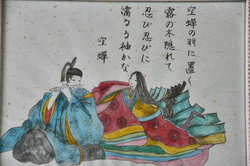 空蝉の羽に置く
露の木隠れて
忍び忍びに
濡るる袖かな
空蝉